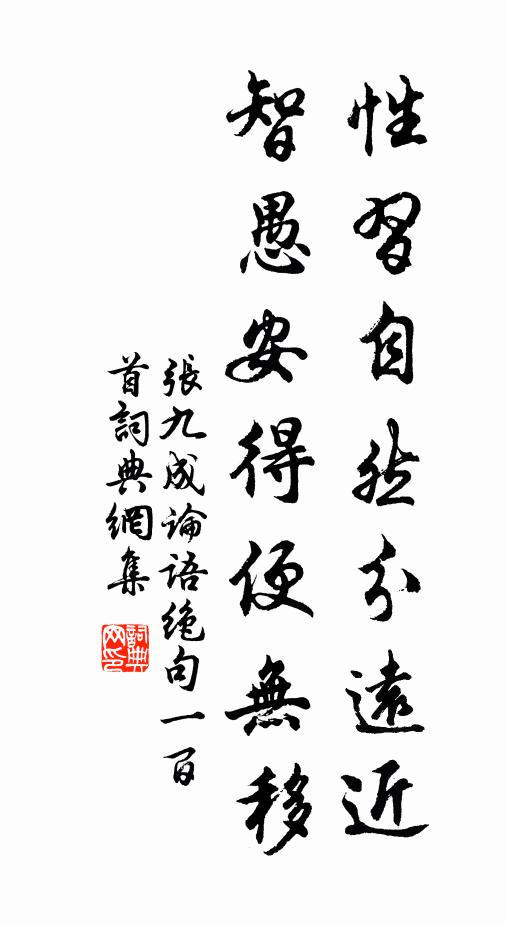 性習自然分遠近
智愚安得便無移
張九成論語絶句一百
首詞典網集
詞典網印